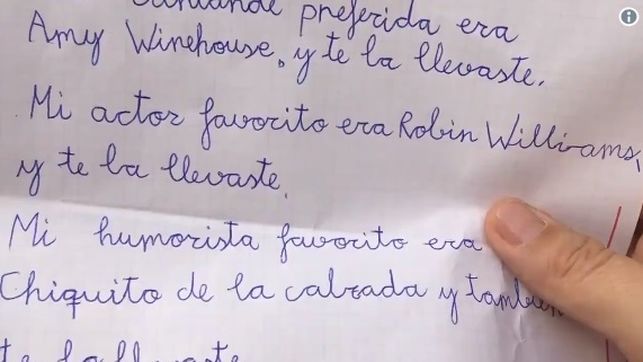 Cantante preferida era
Amy Winehouse, y te la llevaste.
Mi actor favorito era Robin Williams,
y te la llevaste.
Mi humorista favorito era
Chiquito de la calzada y también
te la llevaste